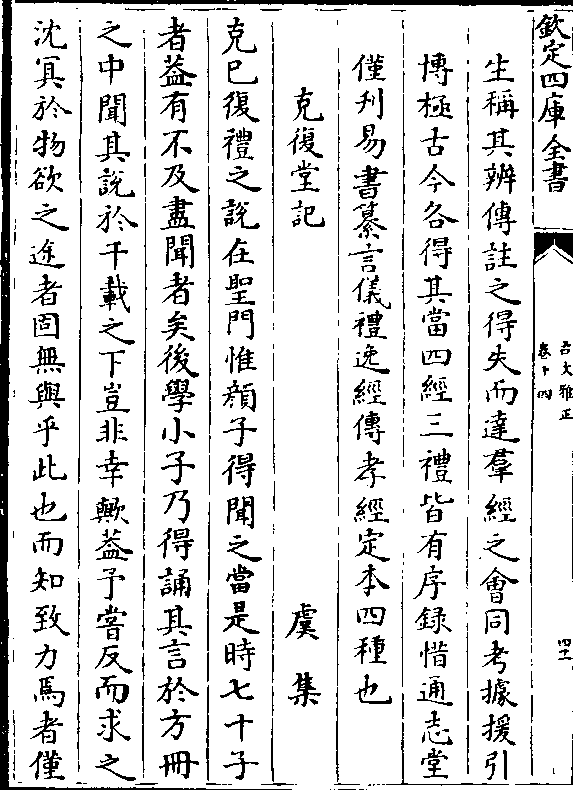 欽定四庫全書
古文雅正
卷十四
四十一
生稱其辨傳註之得失而達羣經之會同考據援引
博極古今各得其當四經三禮皆有序録惜通志堂
僅刋易書纂言儀禮逸經傳孝經定本四種也
克復堂記
虞集
克己復禮之說在聖門惟顔子得聞之當是時七十子
者葢有不及盡聞者矣後學小子乃得誦其言於方冊
之中聞其說於千載之下豈非幸歟葢予嘗反而求之
沈冥於物欲之途者固無與乎此也而知致力焉者僅